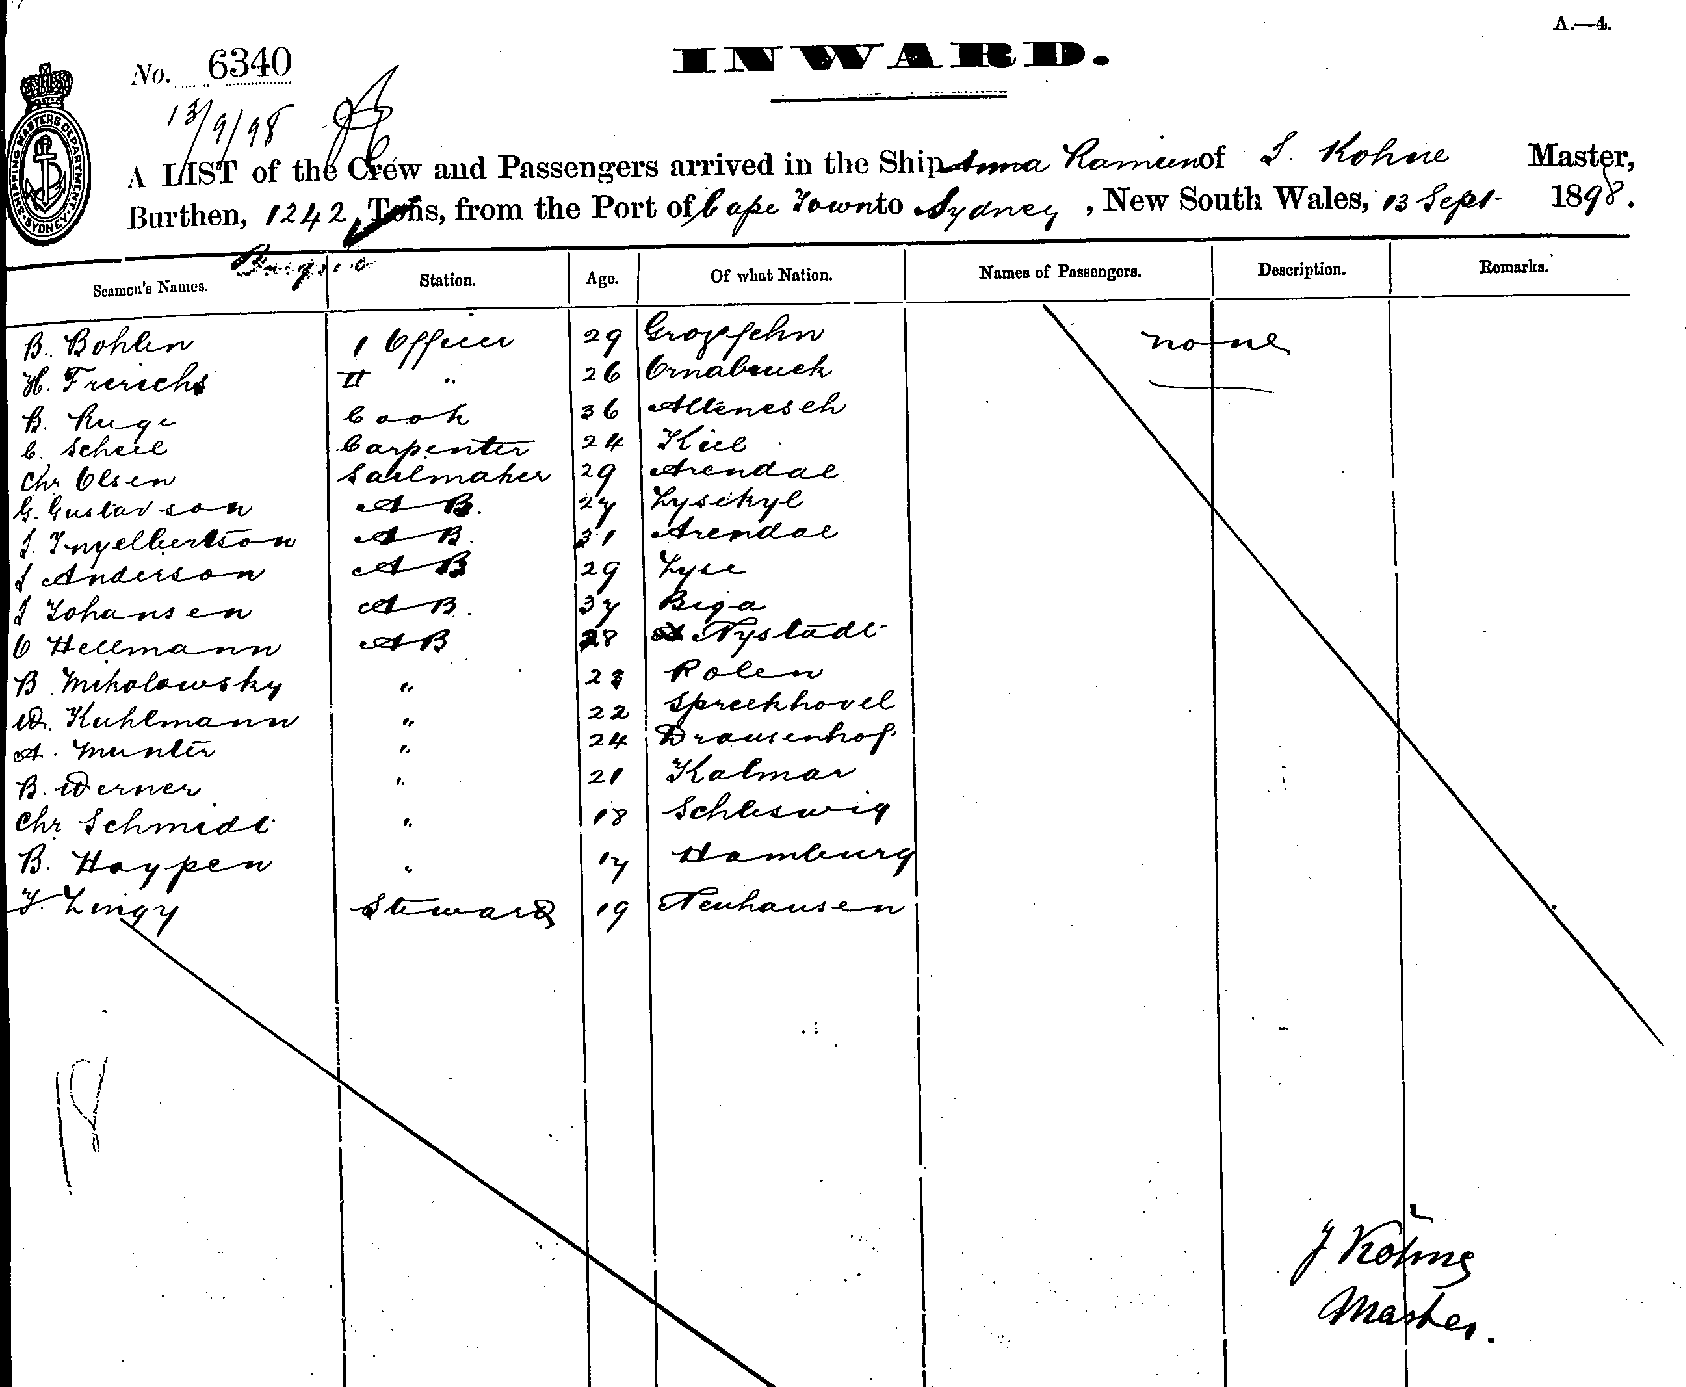 A.—4.
No. 6340
INWARD.
13/9/98
SHIPPING MASTERS DEPARTMENT SYDNEY
A LIST of the Crew and Passengers arrived in the Ship Anna Ramien of J. Kohne Master,
Burthen, 1242 Tons, from the Port of Cape Town to Sydney, New South Wales, 13 Sept 1898.
Seamen's Names. Station. Age. Of what Nation. Names of Passengers. Description. Remarks.
B. Bohlen 1 Officer 29 Grozefehn none
H. Frerichs II " 26 Ornabruck
B. Ruge Cook 36 Altenesch
C. Scheel Carpenter 24 Kiel
Chr Olsen Sailmaker 29 Arendal
G. Gustavson A B. 27 Lysekyl
J. Ingelbertson A B. 31 Arendal
J Anderson A B 29 Lyse
J Johansen A B. 37 Riga
C Hellmann A B 28 Nystadt
B Mikolowsky " 23 Polen
W. Kuhlmann " 22 Spreckhovel
A. Munter " 24 Drausenhof
B. Werner " 21 Kalmar
Chr Schmidt " 18 Schleswig
B. Hoypen " 17 Hamburg
J. Lingy Steward 19 Neuhausen
18
J Köhne
Master.